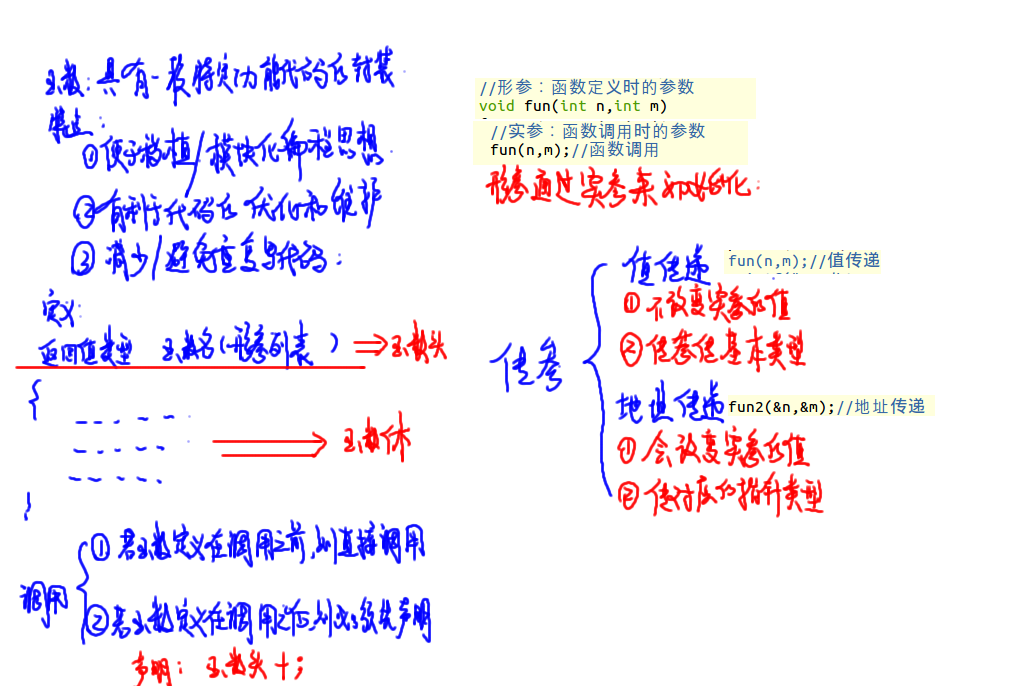 函数:具有一段特定功能代码的封装.
特点:
①便于移植/模块化编程思想
②有利于代码的优化和维护
③减少/避免重复写代码.
定义:
返回值类型 函数名(形参列表) ⇒函数头
{
函数体
}
调用
①若函数定义在调用之前,则直接调用
②若函数定义在调用之后,则必须先声明
声明: 函数头+;
//形参:函数定义时的参数
void fun(int n,int m)
//实参:函数调用时的参数
fun(n,m);//函数调用
形参通过实参来初始化.
传参
值传递 fun(n,m);//值传递
①不改变实参的值
②传参传基本类型
地址传递 fun2(&n,&m);//地址传递
①会改变实参的值
②传对应的指针类型